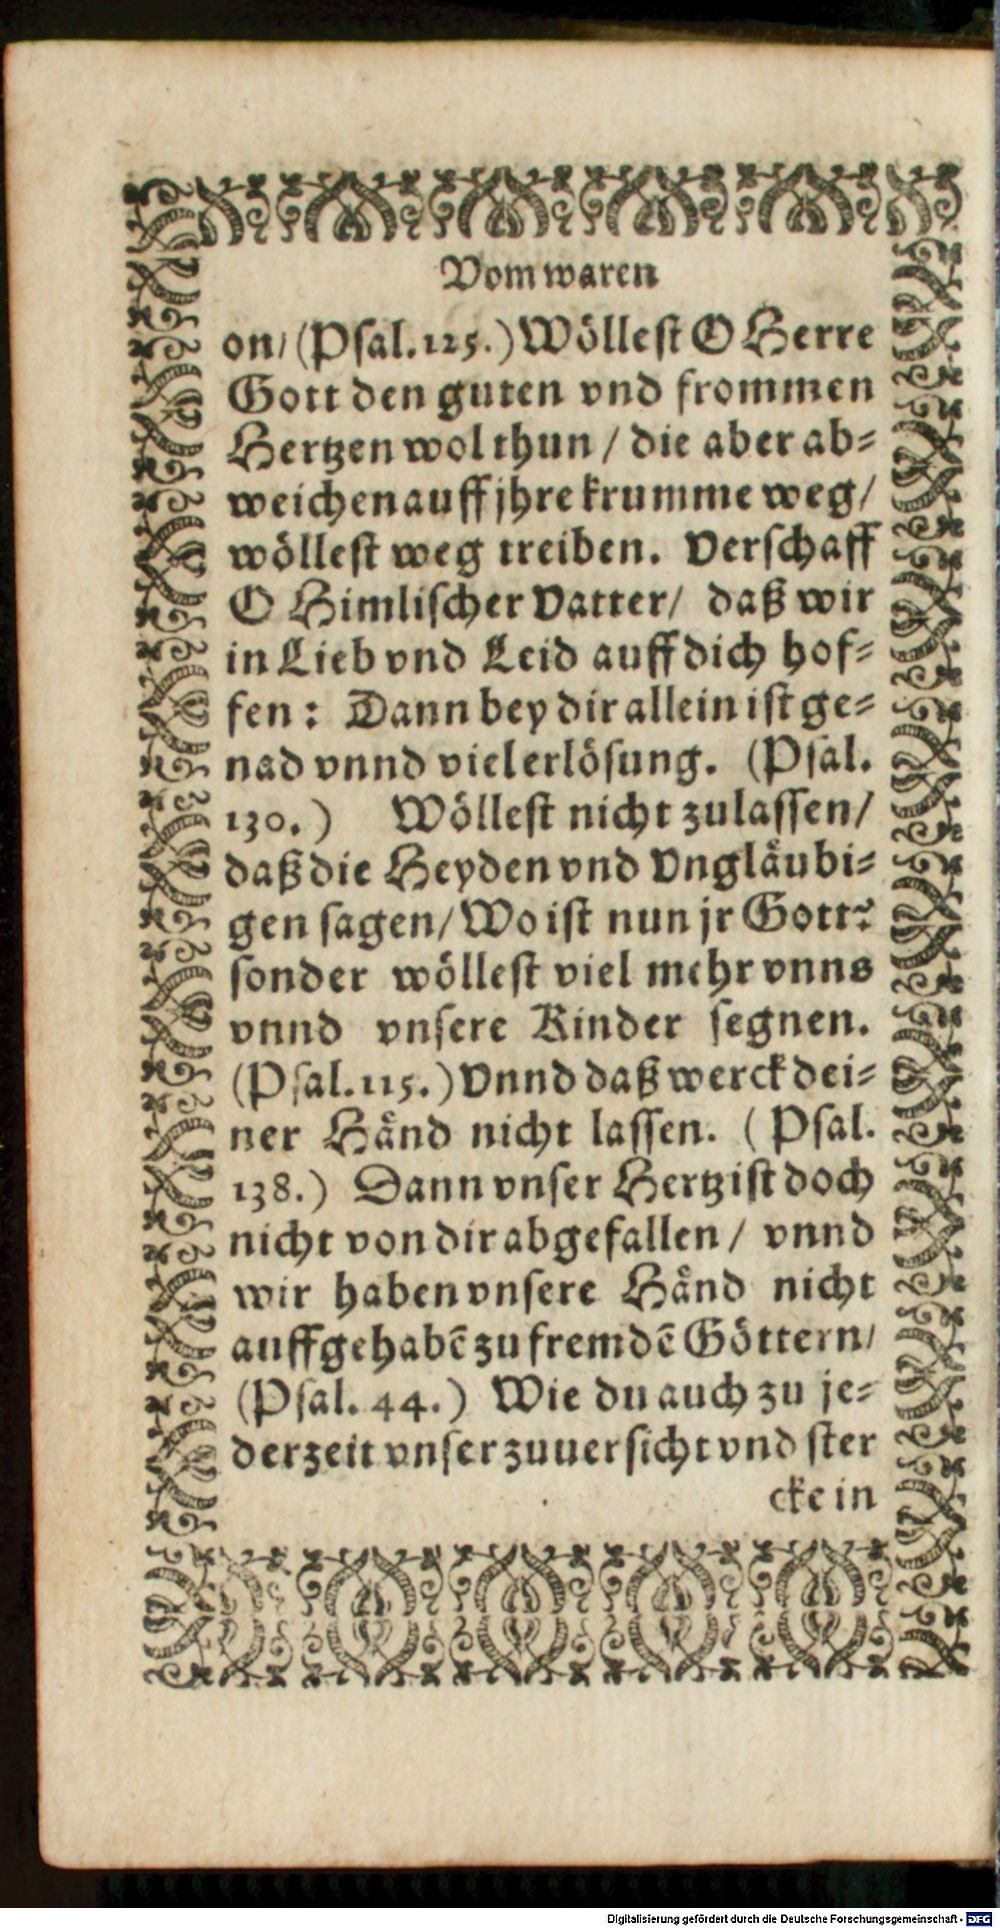 Vom waren
on/ (Psal. 125.) Wöllest O Herre
Gott den guten vnd frommen
Hertzen wol thun / die aber ab-
weichen auff jhre krumme weg/
wöllest weg treiben. Verschaff
O Himlischer Vatter/ daß wir
in Lieb vnd Leid auff dich hof-
fen: Dann bey dir allein ist ge-
nad vnnd viel erlösung. (Psal.
130.) Wöllest nicht zulassen/
daß die Heyden vnd Vngläubi-
gen sagen/ Wo ist nun jr Gott?
sonder wöllest viel mehr vnns
vnnd vnsere Kinder segnen.
(Psal. 115.) Vnnd daß werck dei-
ner Händ nicht lassen. (Psal.
138.) Dann vnser Hertz ist doch
nicht von dir abgefallen / vnnd
wir haben vnsere Händ nicht
auffgehabẽ zu fremdẽ Göttern/
(Psal. 44.) Wie du auch zu je-
derzeit vnser zuuersicht vnd ster
cke in
Digitalisierung gefördert durch die Deutsche Forschungsgemeinschaft - DFG